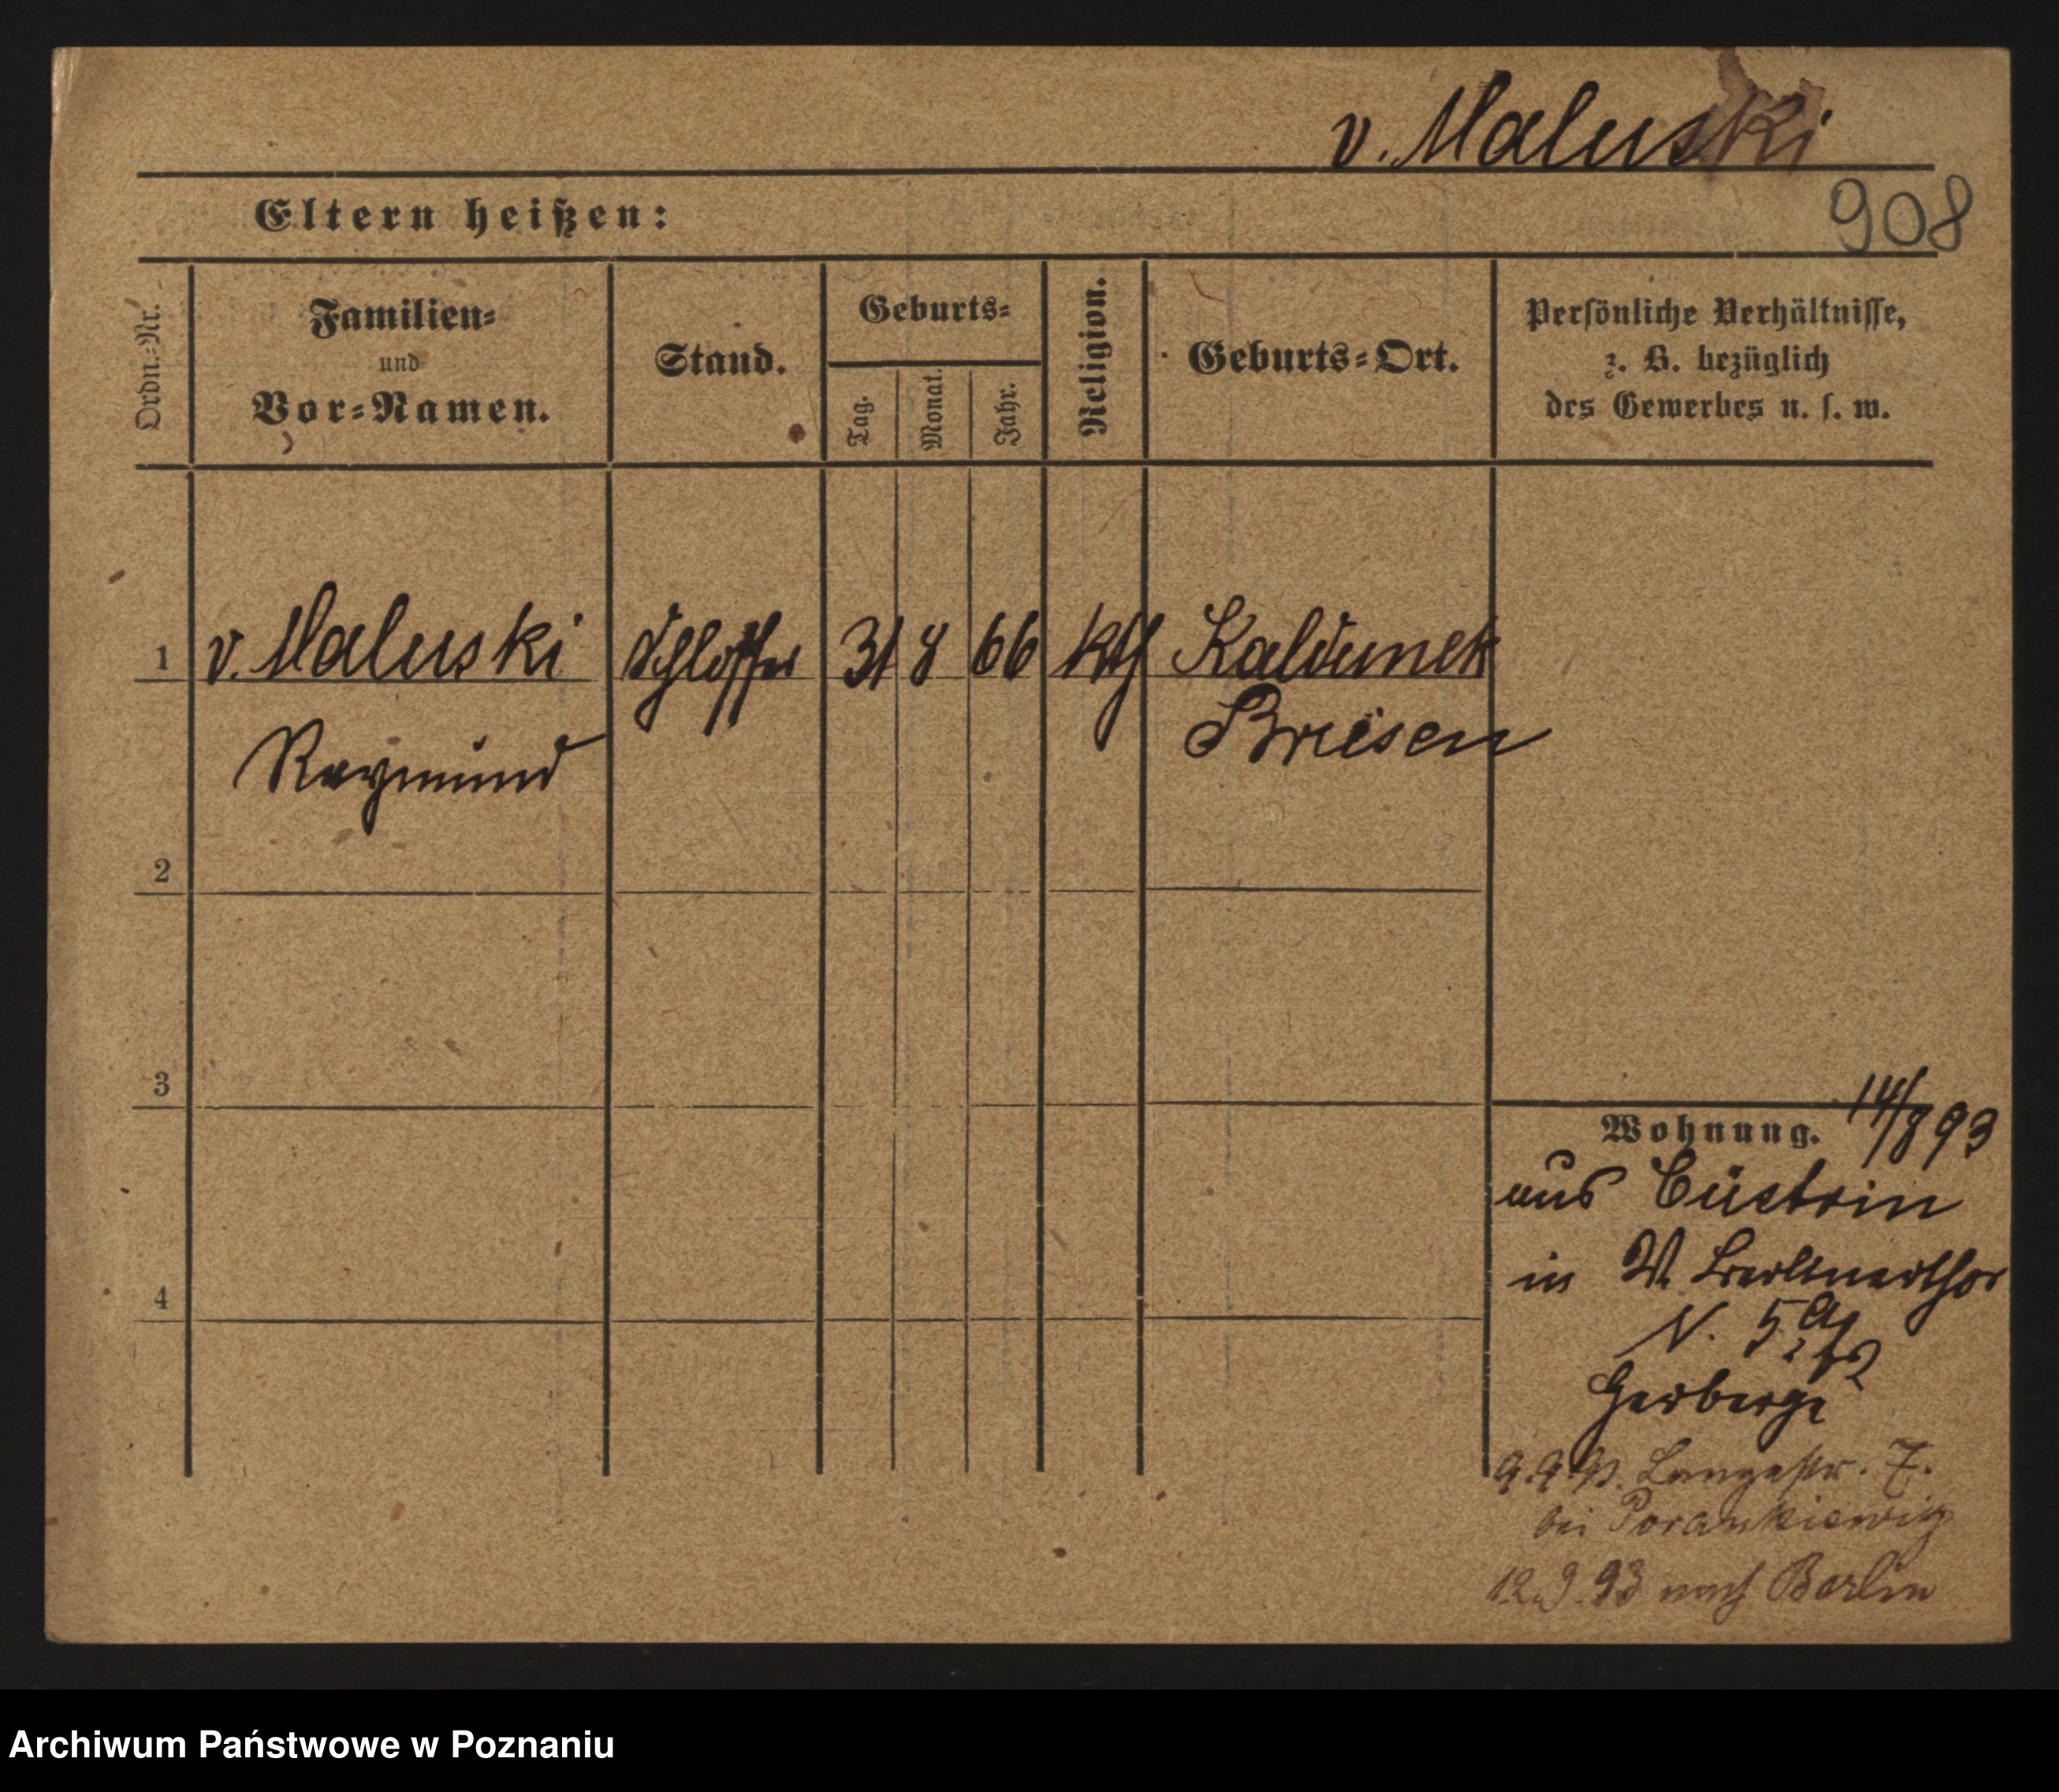 v. Maluski
908
Eltern heißen:
Ordn.-Nr.
Familien-
und
Vor-Namen.
Stand.
Geburts-
Tag.
Monat.
Jahr.
Religion.
Geburts-Ort.
Persönliche Verhältnisse,
z. B. bezüglich
des Gewerbes u. s. w.
1 v. Maluski Schlosser 31 8 66 kth Kaldunek
Raymund Briesen
2
3
4
Wohnung. 14/8 93
aus Cüstrin
in W. Berlinerthor
N. 5
Herberge
9.9.93. Langestr. 7.
bei Porankiewicz
12.9.93 nach Berlin
Archiwum Państwowe w Poznaniu